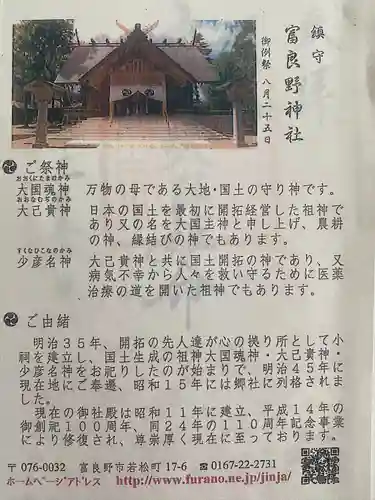 鎮守
富良野神社
御例祭 八月二十五日
ご祭神
おおくにたまのかみ
大国魂神 万物の母である大地・国土の守り神です。
おおなむぢのかみ
大己貴神 日本の国土を最初に開拓経営した祖神で
あり又の名を大国主神と申し上げ、農耕
の神、縁結びの神でもあります。
すくなひこなのかみ
少彦名神 大己貴神と共に国土開拓の神であり、又
病気不幸から人々を救い守るために医薬
治療の道を開いた祖神でもあります。
ご由緒
明治35年、開拓の先人達が心の拠り所として小
祠を建立し、国土生成の祖神大国魂神・大己貴神・
少彦名神をお祀りしたのが始まりで、明治45年に
現在地にご奉遷、昭和15年には郷社に列格されま
した。
現在の御社殿は昭和11年に建立、平成14年の
御創祀100周年、同24年の110周年記念事業
により修復され、尊崇厚く現在に至っております。
〒076-0032 富良野市若松町17-6 ☎0167-22-2731
ホームページアドレス http://www.furano.ne.jp/jinja/